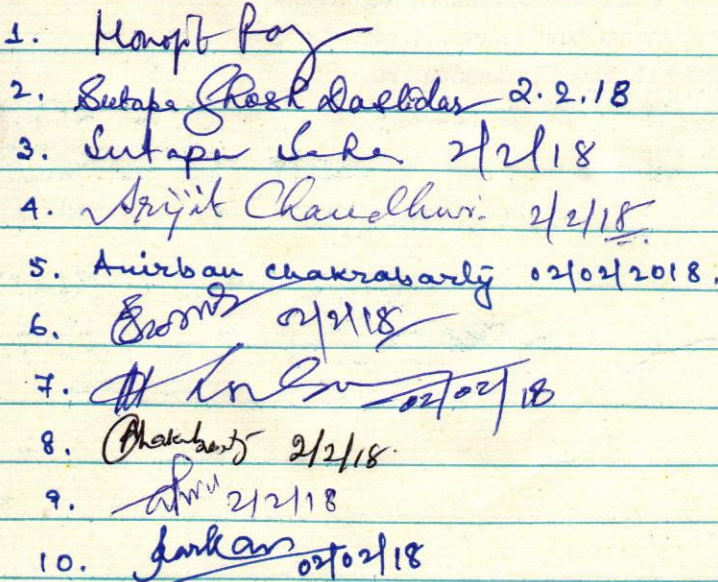 1. Monojit Roy
2. Sutapa Ghosh Dastidar 2.2.18
3. Sutapa Saha 2/2/18
4. Arijit Chaudhuri. 2/2/18.
5. Anirban chakrabarty 02/02/2018.
6. 02/2/18
7. 02/02/18
8. Chakraborty 2/2/18.
9. 2/2/18
10. Sarkar 02/02/18